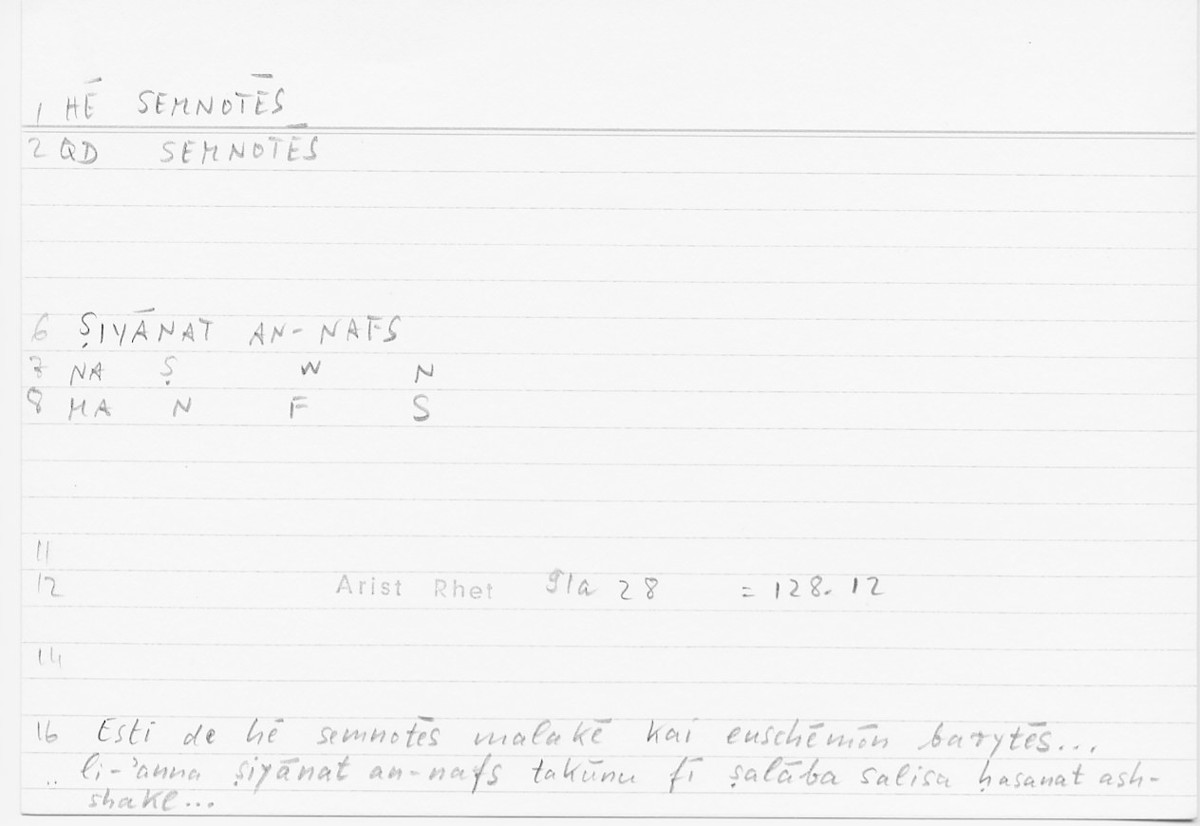 1 HĒ SEMNOTĒS
2 QD SEMNOTĒS
6 ṢIYĀNAT AN-NAFS
7 NA Ṣ W N
8 MA N F S
11
12 Arist Rhet 91a 28 = 128.12
14
16 Esti de hē semnotēs malakē kai euschēmōn barytēs...
.. li-ʾanna ṣiyānat an-nafs takūnu fī ṣalāba salisa ḥasanat ash-
shakl...